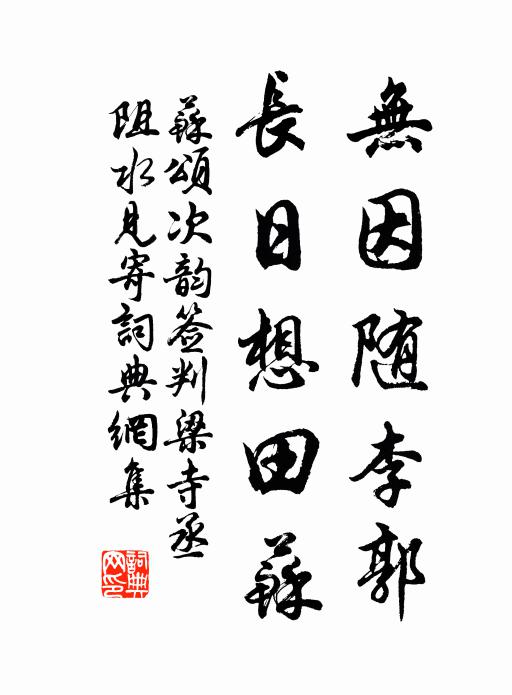 無因随李郭
長日想田蘇
蘇頌次韵签判梁寺丞
阻水見寄詞典網集
詞典網印